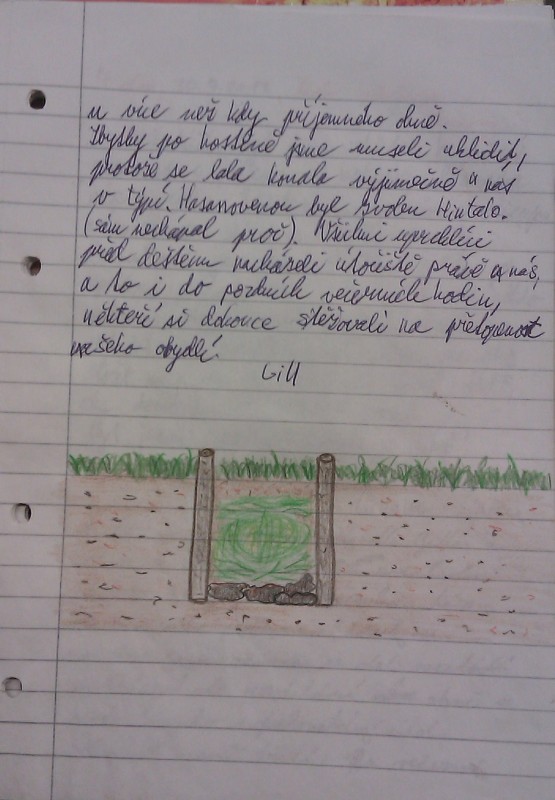 u více než kdy příjemného dne.
Zbytky po hostině jsme museli uklidit,
protože se lala konala výjimečně u nás
v týpí. Hasanovenou byl zvolen Hiutalo.
(sám nechápal proč). Všichni uprchlíci
před deštěm nacházeli útočiště právě u nás,
a to i do pozdních večerních hodin,
někteří si dokonce stěžovali na přetopenost
našeho obydlí.
Gill